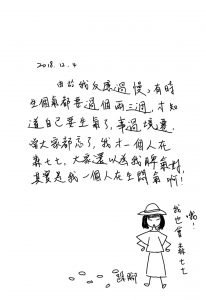 2018.12.4
由於我反應過慢，有時
生個氣都要過個兩三週，才知
道自己要生氣了，事過境遷，
當大家都忘了，我才一個人在
森七七，大家還以為我脾氣好
其實是我一個人在生悶氣啊！
哦！
我也會森七七
跺腳